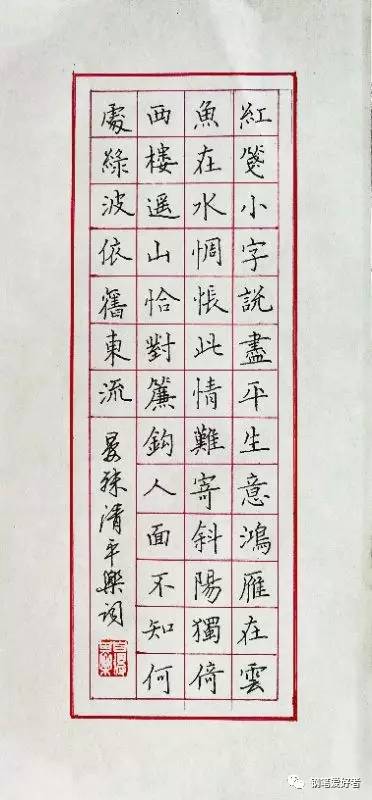 紅箋小字說盡平生意鴻雁在雲
魚在水惆悵此情難寄斜陽獨倚
西樓遥山恰對簾鈎人面不知何
處綠波依舊東流
晏殊清平樂詞
钢笔爱好者